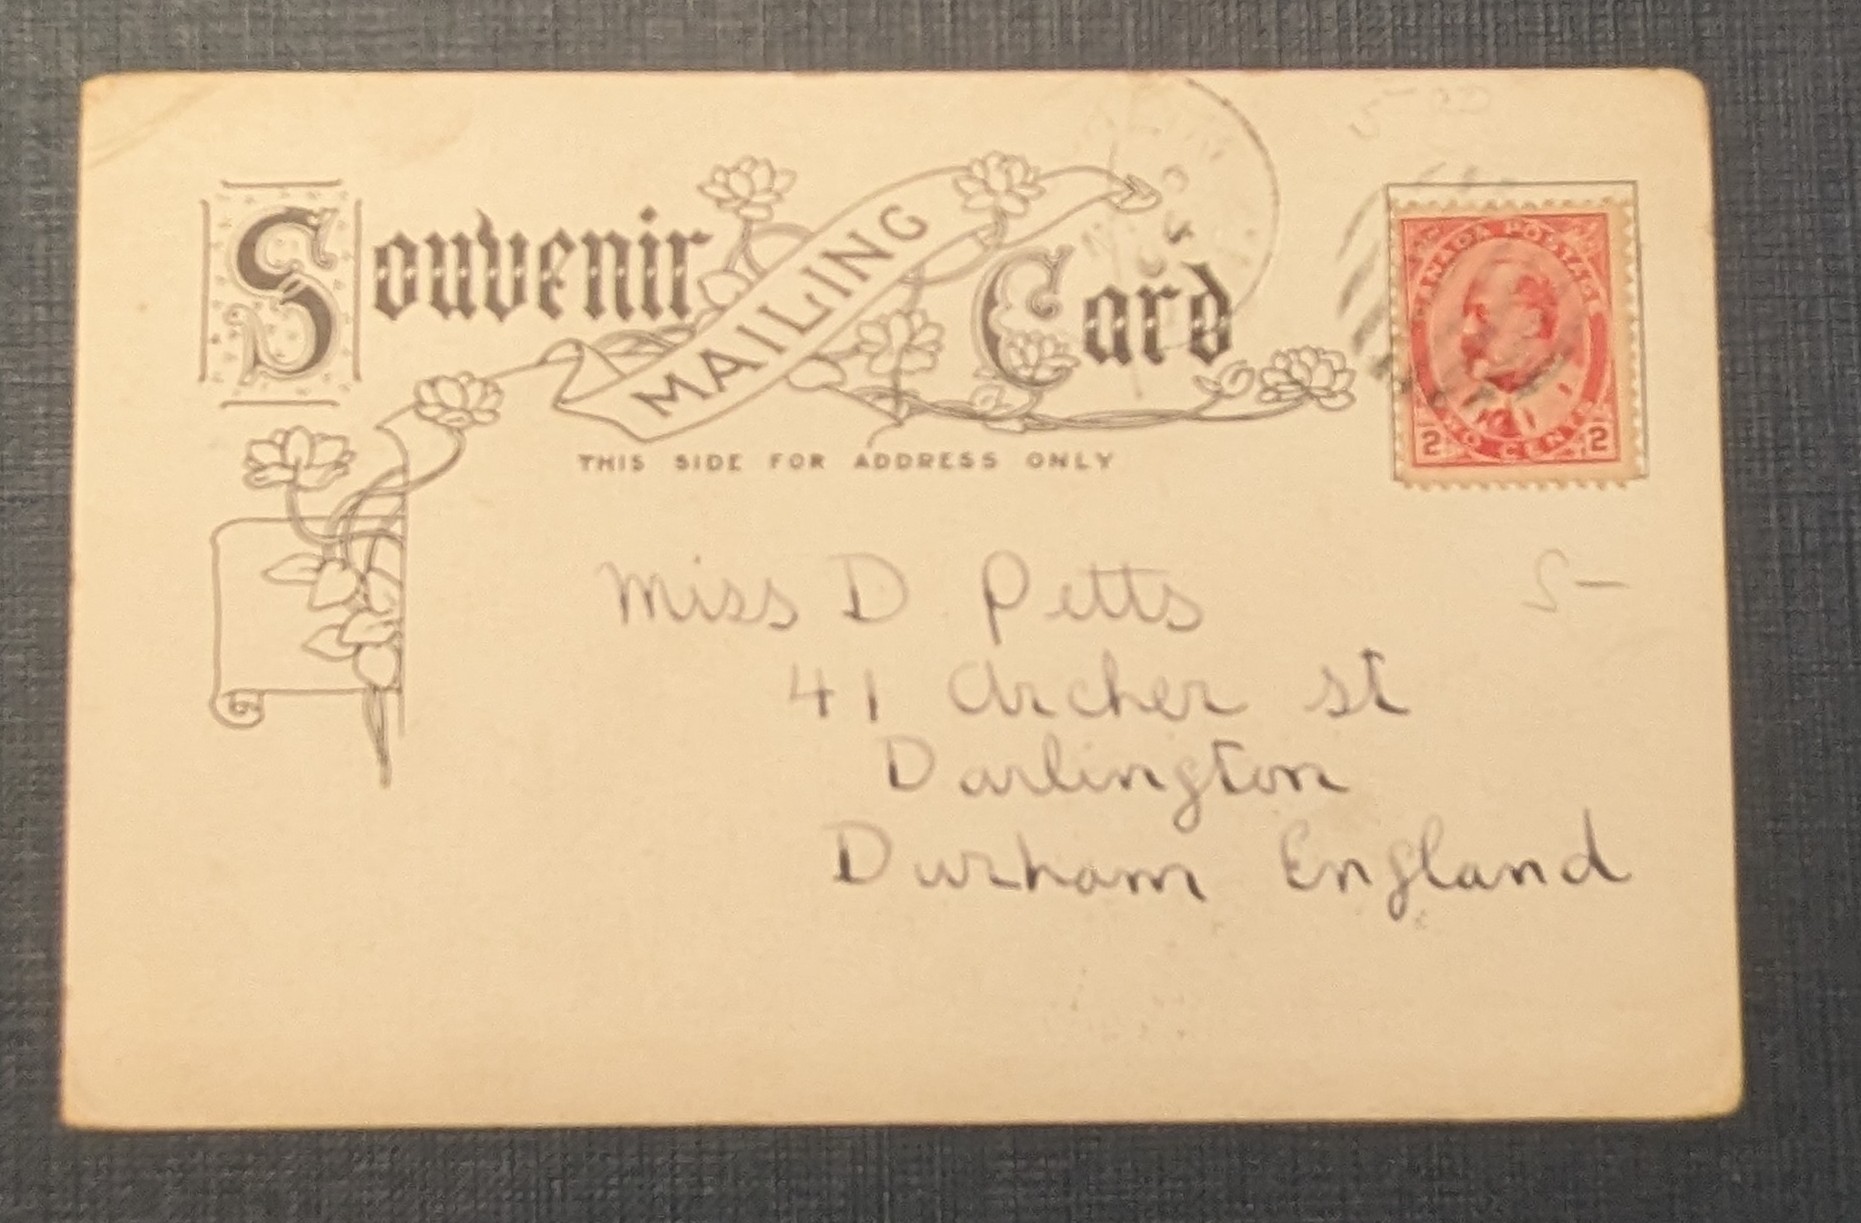 Souvenir MAILING Card
THIS SIDE FOR ADDRESS ONLY
CANADA POSTAGE
2 TWO CENTS 2
Miss D Petts
41 Archer st
Darlington
Durham England
5-